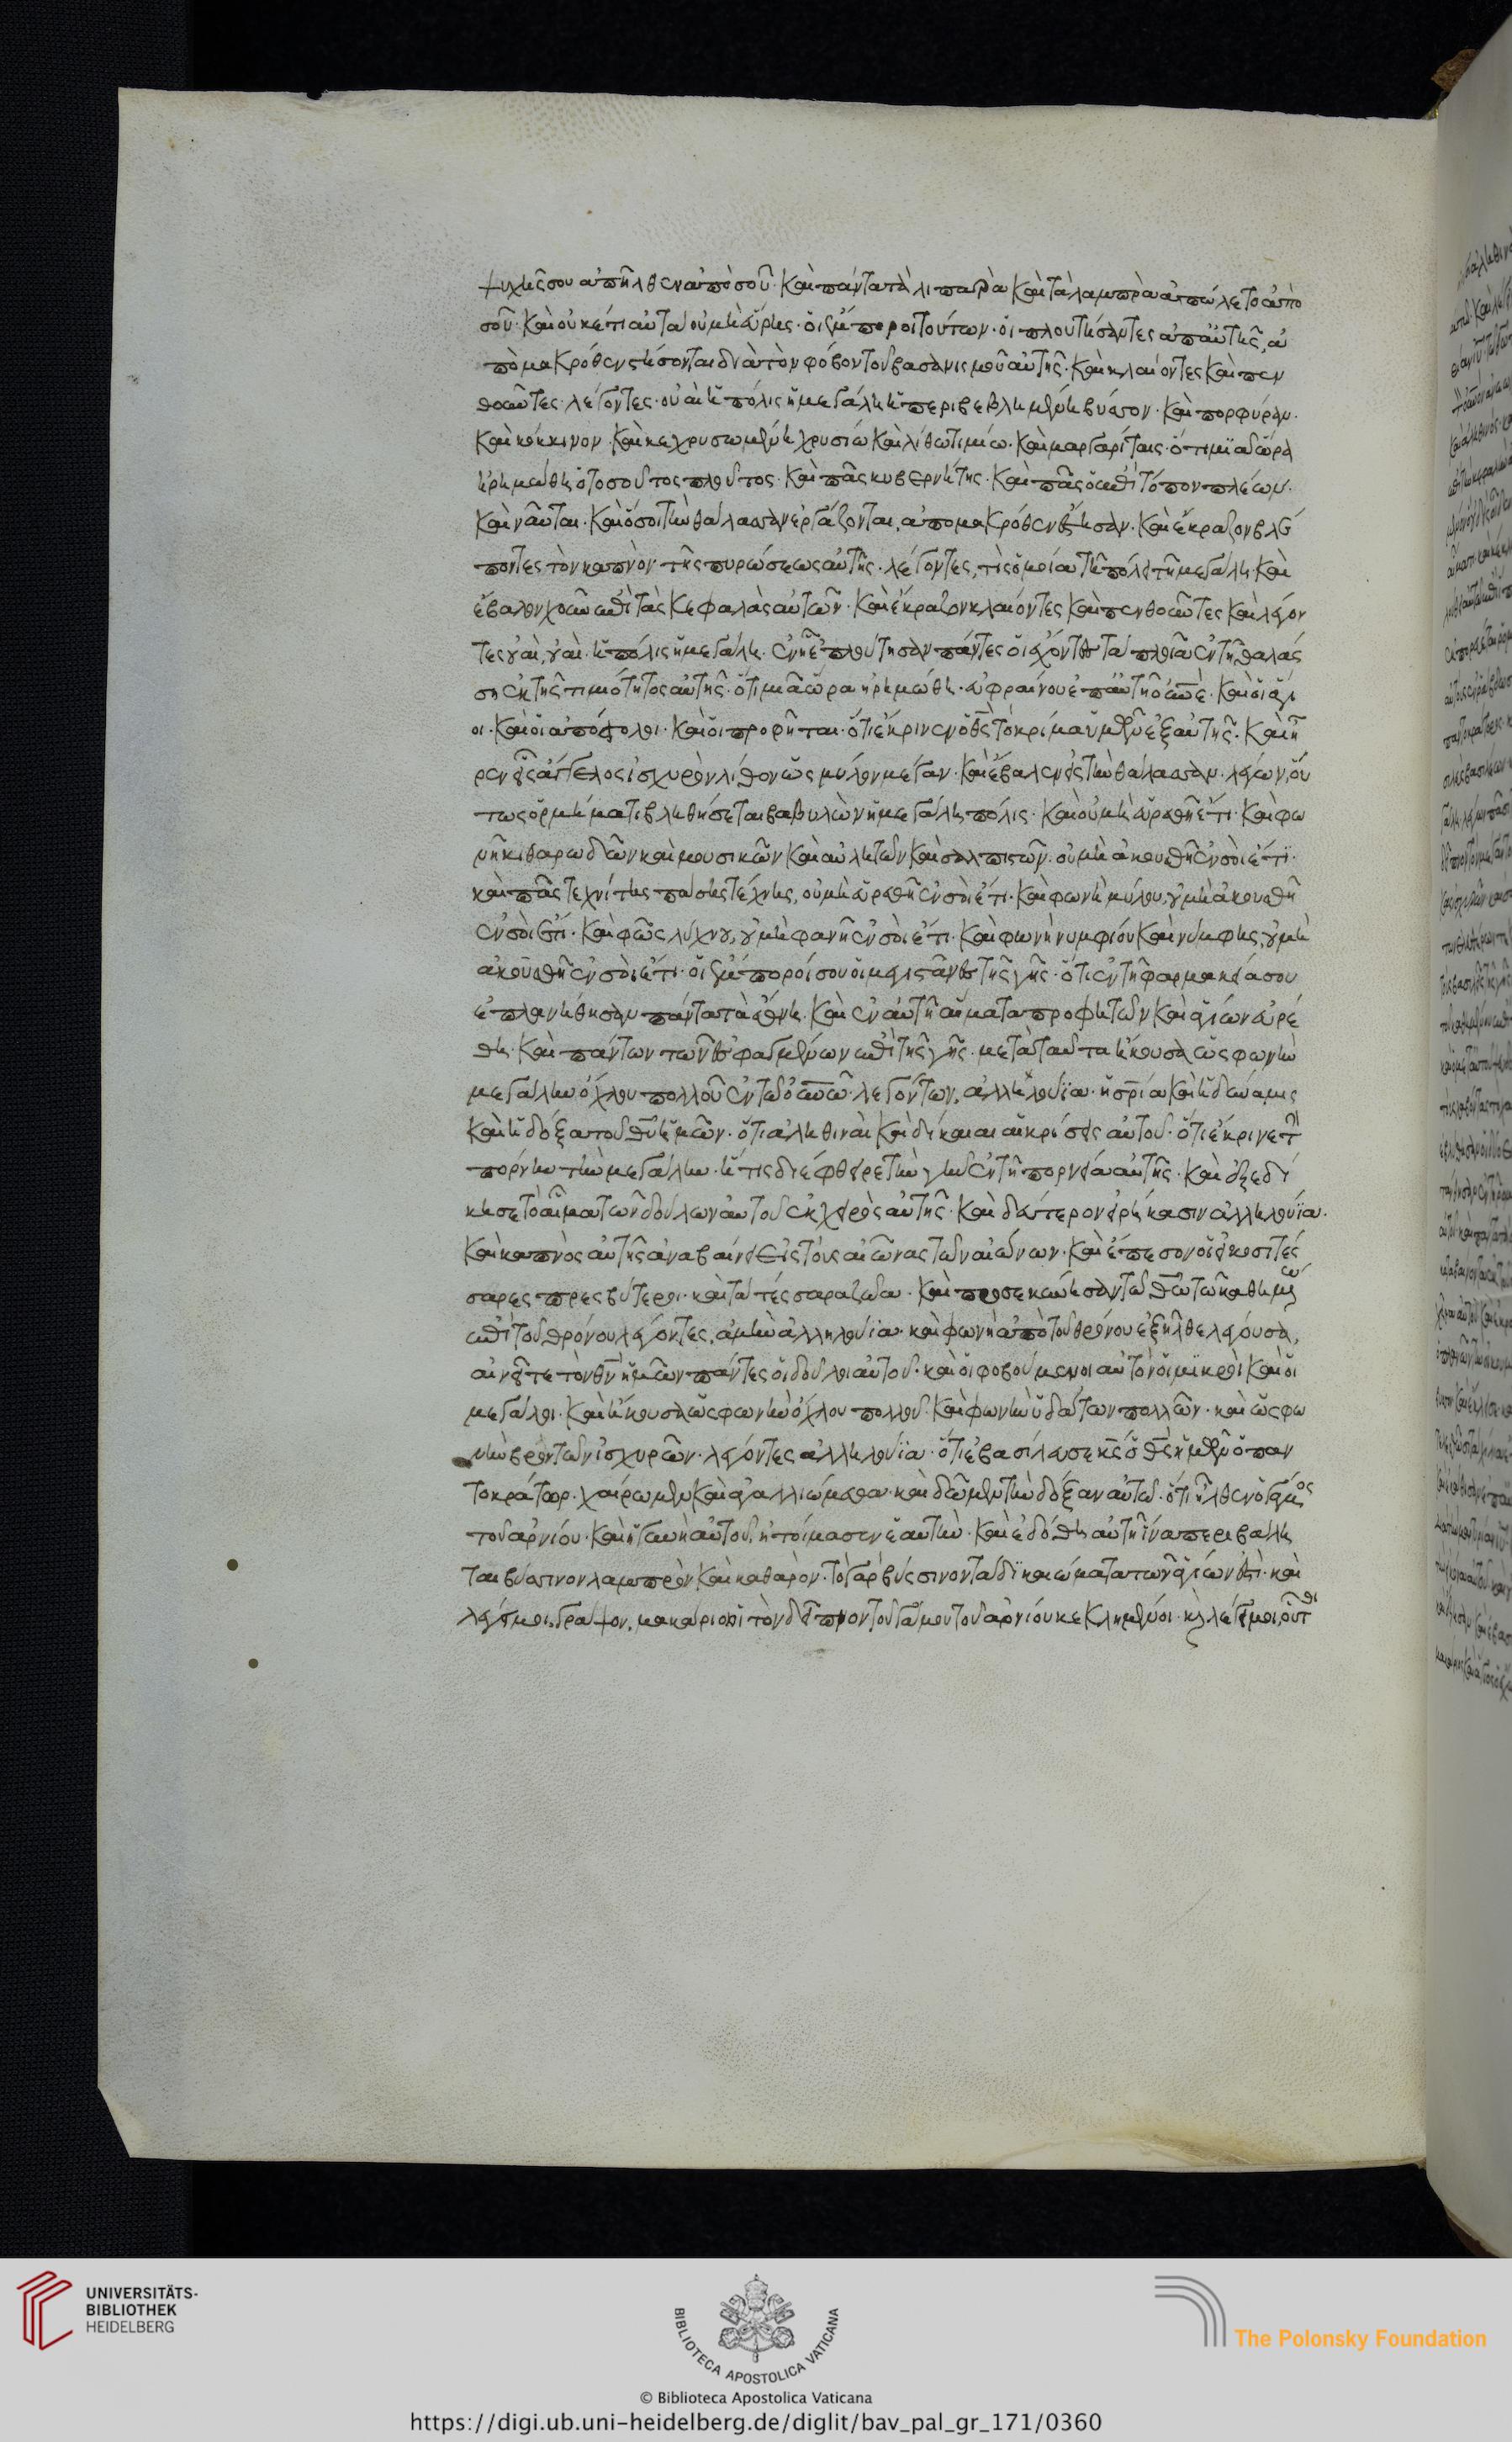 ψυχῆς σου ἀπῆλθεν ἀπὸ σοῦ· καὶ πάντα τὰ λιπαρὰ καὶ τὰ λαμπρὰ ἀπώλετο ἀπὸ
σοῦ· καὶ οὐκέτι αὐτὰ οὐ μὴ εὕρῃς· οἱ ἔμποροι τούτων· οἱ πλουτήσαντες ἀπ' αὐτῆς, ἀ
πὸ μακρόθεν στήσονται διὰ τὸν φόβον τοῦ βασανισμοῦ αὐτῆς· καὶ κλαίοντες καὶ πεν
θοῦντες· λέγοντες· οὐαὶ ἡ πόλις ἡ μεγάλη ἡ περιβεβλημένη βύσσον· καὶ πορφύραν·
καὶ κόκκινον· καὶ κεχρυσωμένη χρυσίω καὶ λίθω τιμίω· καὶ μαργαρίταις· ὅτι μϊᾶ ὥρα
ἠρημώθη ὁ τοσοῦτος πλοῦτος· καὶ πᾶς κυβερνήτης· καὶ πᾶς ὁ ἐπὶ τόπον πλέων·
καὶ ναῦται· καὶ ὅσοι τὴν θάλασσαν ἐργάζονται, ἀπομακρόθεν ἔστησαν· καὶ ἔκραζον βλέ
ποντες τὸν καπνὸν τῆς πυρώσεως αὐτῆς· λέγοντες, τίς ὁμοία τῆ πόλει τῆ μεγάλη· καὶ
ἔβαλον χοῦν ἐπὶ τὰς κεφαλὰς αὐτῶν· καὶ ἔκραζον κλαίοντες καὶ πενθοῦντες καὶ λέγον
τες οὐαὶ, οὐαὶ· ἡ πόλις ἡ μεγάλη· ἐν ἧ ἐπλούτησαν πάντες οἱ ἔχοντες τὰ πλοῖα ἐν τῆ θαλάσ
ση ἐκ τῆς τιμιότητος αὐτῆς· ὅτι μιᾶ ὥρα ἠρημώθη· εὐφραίνου ἐπ' αὐτῆ οὐνὲ· καὶ οἱ ἅγι
οι· καὶ οἱ ἀπόστολοι· καὶ οἱ προφῆται· ὅτι ἔκρινεν ὁ θς τὸ κρίμα ὑμῶν ἐξ αὐτῆς· καὶ ἦ
ρεν εἷς ἄγγελος ἰσχυρὸν λίθον ὡς μύλον μέγαν· καὶ ἔβαλεν εἰς τὴν θάλασσαν· λέγων, οὕ
τως ὁρμήματι βληθήσεται βαβυλὼν ἡ μεγάλη πόλις· καὶ οὐ μὴ εὑρεθῆ ἔτι· καὶ φω
νὴ κιθαρωδῶν καὶ μουσικῶν καὶ αὐλητῶν καὶ σαλπιστῶν· οὐ μὴ ἀκουσθῆ ἐν σοὶ ἔτϊ·
καὶ πᾶς τεχνίτης πάσης τέχνης, οὐ μὴ εὑρεθῆ ἐν σοὶ ἔτι· καὶ φωνὴ μύλου, οὐ μὴ ἀκουσθῆ
ἐν σοὶ ἔτι· καὶ φῶς λύχνου, οὐ μὴ φανῆ ἐν σοὶ ἔτι· καὶ φωνὴ νυμφίου καὶ νύμφης, οὐ μὴ
ἀκουσθῆ ἐν σοὶ ἔτι· οἱ ἔμποροί σου οἱ μεγιστᾶνες τῆς γῆς· ὅτι ἐν τῆ φαρμακεία σου
ἐπλανήθησαν πάντα τὰ ἔθνη. καὶ ἐν αὐτῆ αἵματα προφητῶν καὶ ἁγίων εὑρέ
θη· καὶ πάντων τῶν ἐσφαγμένων ἐπὶ τῆς γῆς· μετὰ ταῦτα ἤκουσα ὡς φωνὴν
μεγάλην ὄχλου πολλοῦ ἐν τῶ οὐνῶ· λεγόντων, ἀλληλούϊα· ἡ σρία καὶ ἡ δύναμις
καὶ ἡ δόξα τοῦ θυ ἡμῶν· ὅτι ἀληθιναὶ καὶ δίκαιαι αἱ κρίσεις αὐτοῦ· ὅτι ἔκρινε τὴν
πόρνην τὴν μεγάλην· ἥτις διέφθειρε τὴν γῆν ἐν τῆ πορνεία αὐτῆς· καὶ ἐξεδί
κησε τὸ αἷμα τῶν δούλων αὐτοῦ ἐκ χειρὸς αὐτῆς· καὶ δεύτερον εἰρήκασιν ἀλληλούϊα·
καὶ καπνὸς αὐτῆς ἀναβαίνει εἰς τοὺς αἰῶνας τῶν αἰώνων· καὶ ἔπεσον οἱ εἴκοσι τές
σαρες πρεσβύτεροι· καὶ τὰ τέσσαρα ζῶα· καὶ προσεκύνησαν τῶ θῶ τῶ καθημένω
ἐπὶ τοῦ θρόνου λέγοντες, ἀμὴν ἀλληλούϊα· καὶ φωνὴ ἀπὸ τοῦ θρόνου ἐξῆλθε λέγουσα,
αἰνεῖτε τὸν θν ἡμῶν πάντες οἱ δοῦλοι αὐτοῦ· καὶ οἱ φοβούμενοι αὐτὸν οἱ μϊκροὶ καὶ οἱ
μεγάλοι· καὶ ἤκουσα ὡς φωνὴν ὄχλου πολλοῦ· καὶ φωνὴν ὑδάτων πολλῶν· καὶ ὡς φω
νὴν βροντῶν ἰσχυρῶν· λέγοντες ἀλληλούϊα· ὅτι ἐβασίλευσε κς ὁ θς ἡμῶν ὁ παν
τοκράτωρ· χαίρωμεν καὶ ἀγαλλιώμεθα· καὶ δῶμεν τὴν δόξαν αὐτῶ· ὅτι ἦλθεν ὁ γάμος
τοῦ ἀρνίου· καὶ ἡ γυνὴ αὐτοῦ, ἡτοίμασεν ἑαυτὴν· καὶ ἐδόθη αὐτῆ ἵνα περιβάλη
ται βύσσινον λαμπρὸν καὶ καθαρόν· τὸ γὰρ βύσσινον τὰ δϊκαιώματα τῶν ἁγίων ἐστὶ· καὶ
λέγει μοι, γράψον, μακάριοι οἱ εἰς τὸν δεῖπνον τοῦ γάμου τοῦ ἀρνίου κεκλημένοι· κὶ λέγει μοι, οὗτοι
UNIVERSITÄTS-
BIBLIOTHEK
HEIDELBERG
BIBLIOTECA APOSTOLICA VATICANA
The Polonsky Foundation
© Biblioteca Apostolica Vaticana
https://digi.ub.uni-heidelberg.de/diglit/bav_pal_gr_171/0360